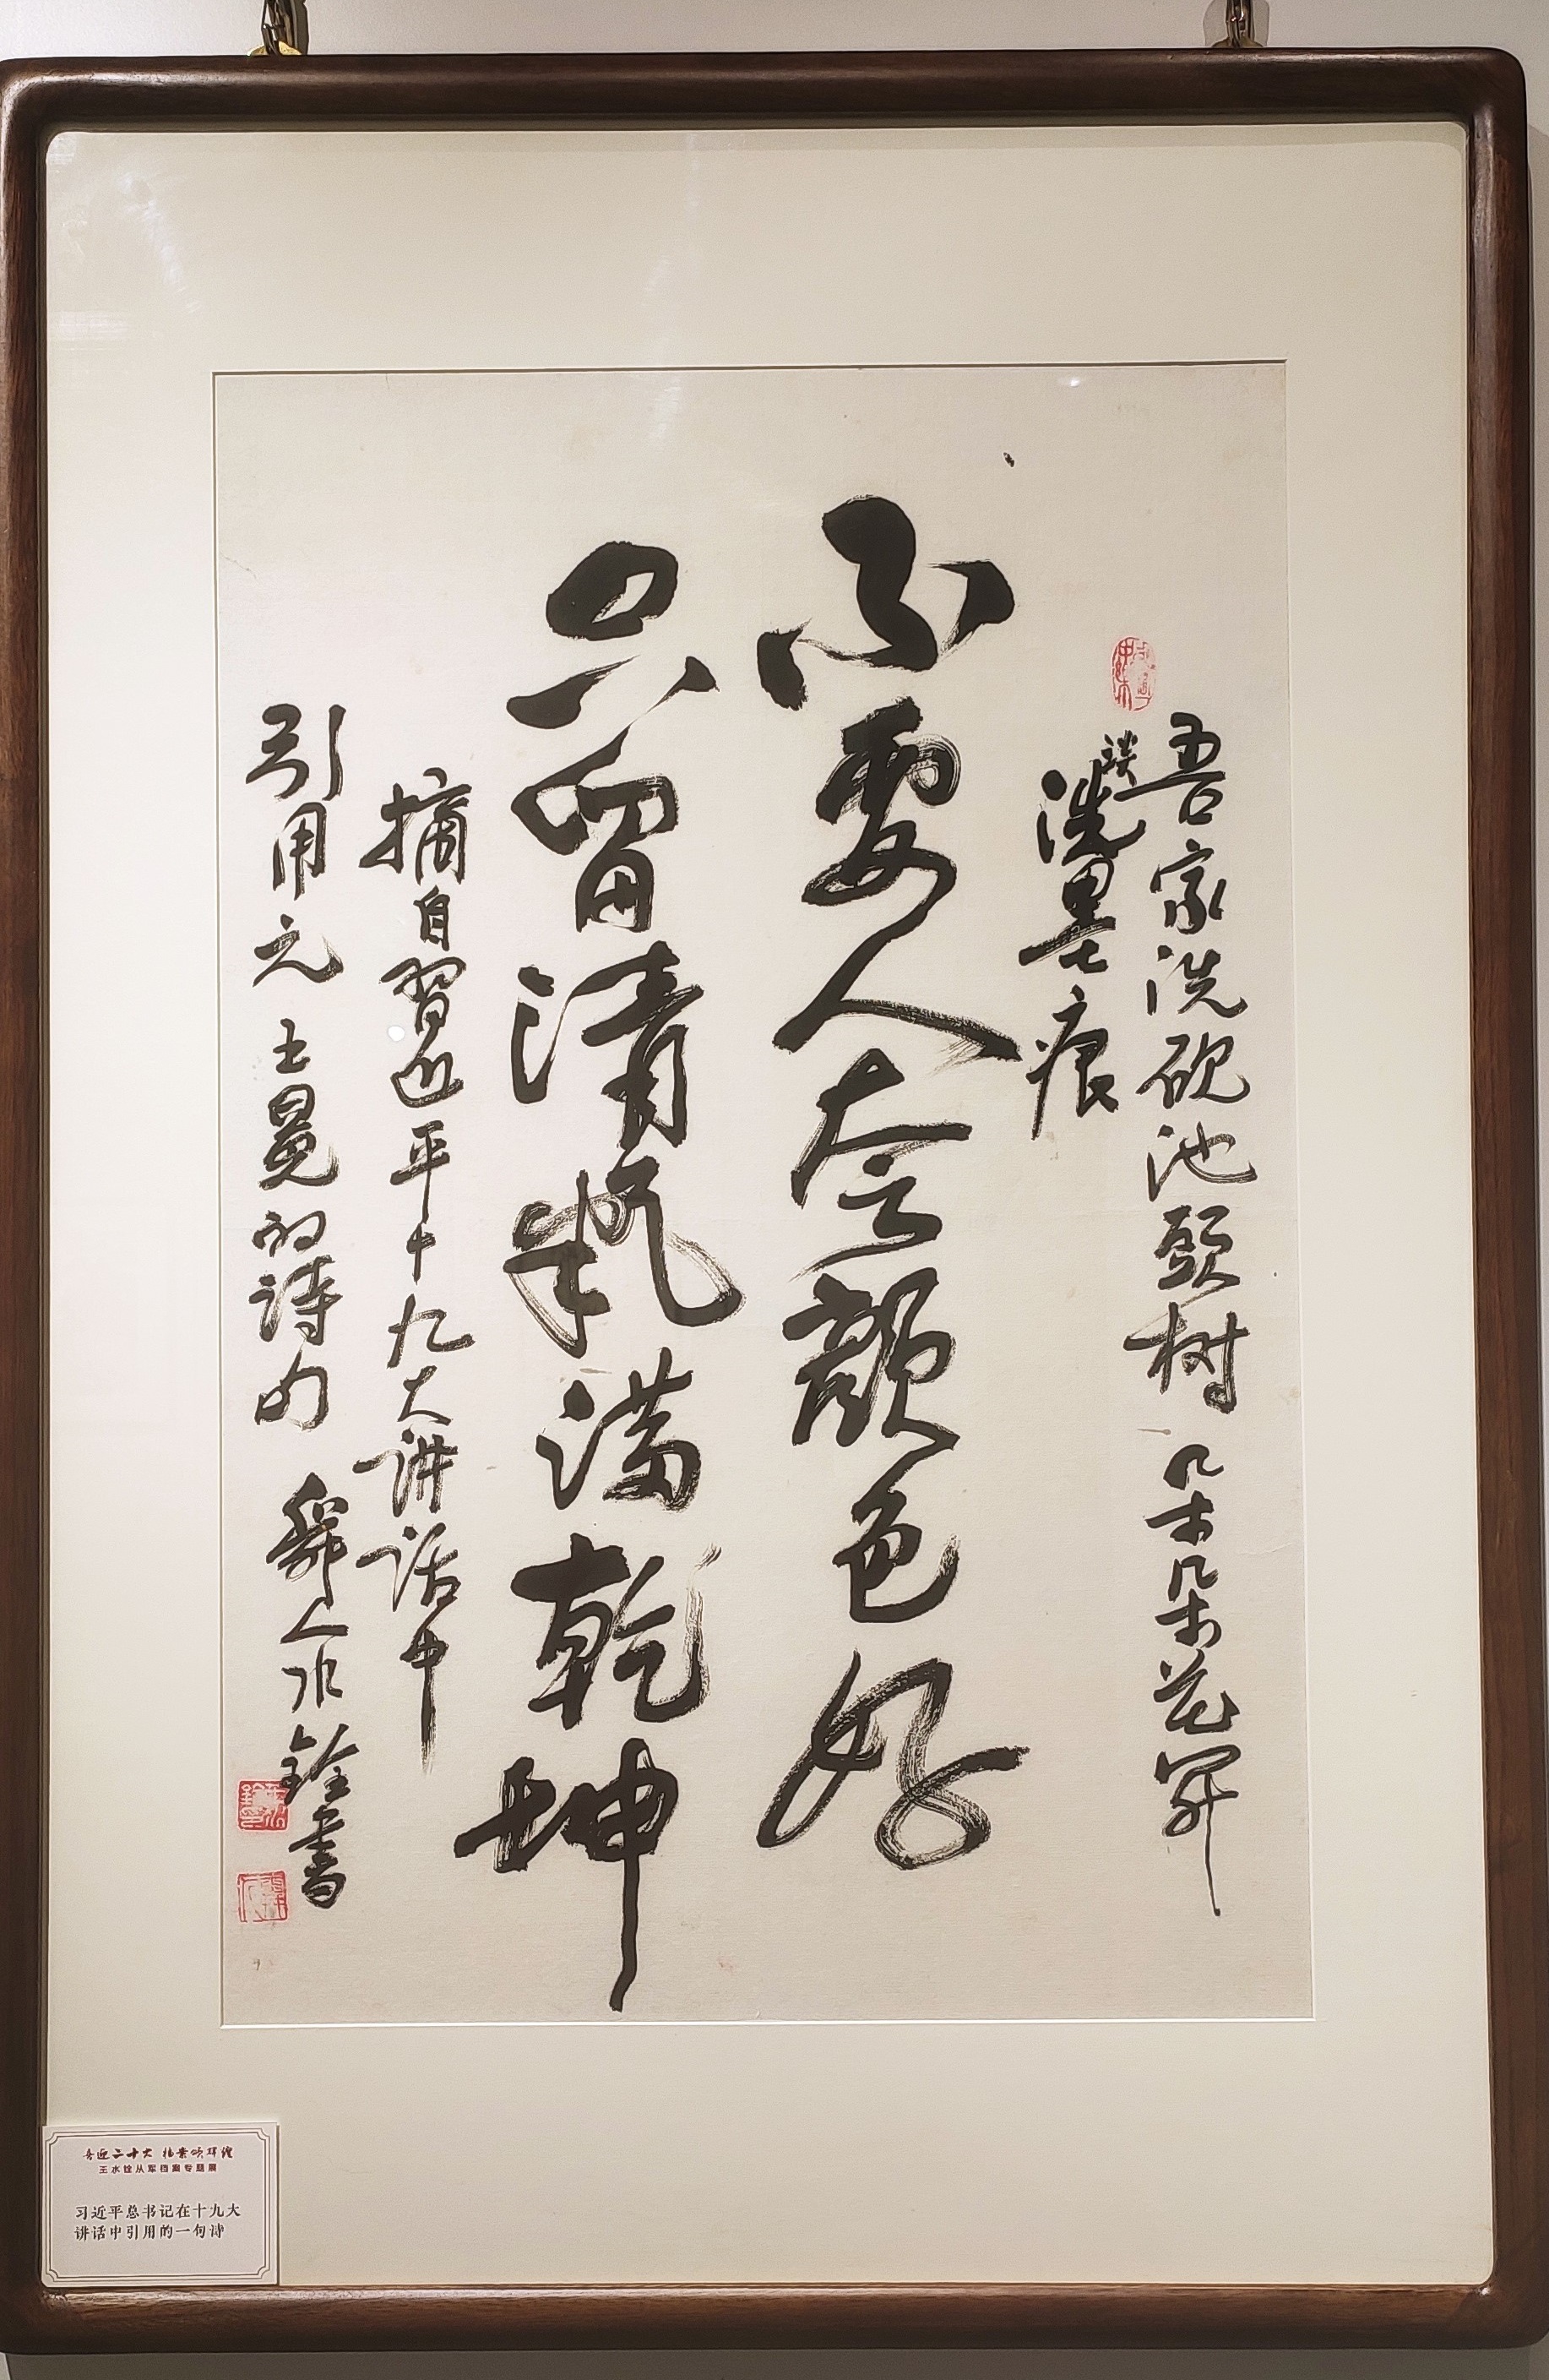 吾家洗砚池頭树 朵朵花开
淡洗墨痕
不要人夸颜色好
只留清氣满乾坤
摘自習近平十九大讲话中
引用元 王冕的诗句 舜人水銓書
喜迎二十大 档案颂辉煌
王水铨从军档案专题展
习近平总书记在十九大
讲话中引用的一句诗